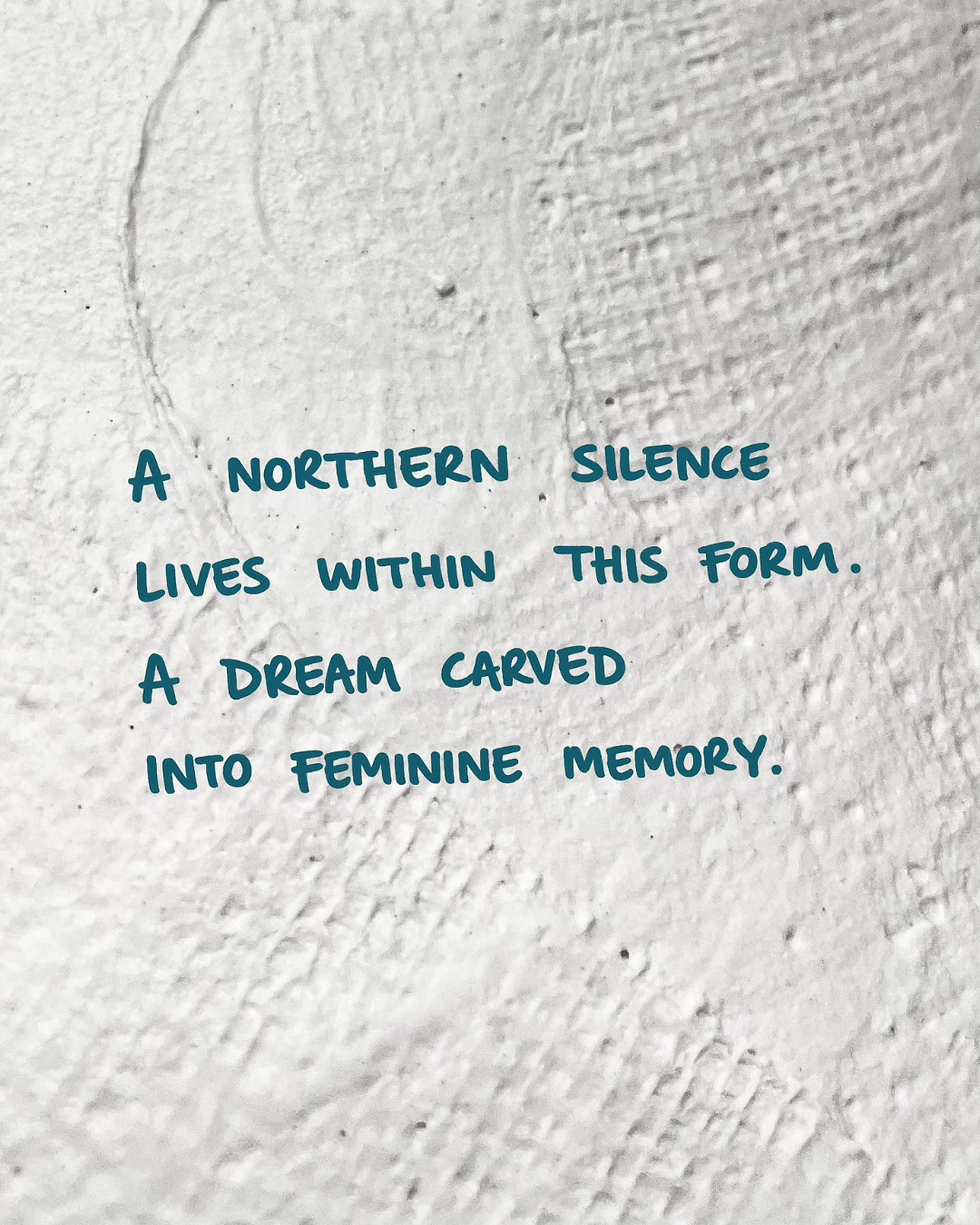 A NORTHERN SILENCE
LIVES WITHIN THIS FORM.
A DREAM CARVED
INTO FEMININE MEMORY.